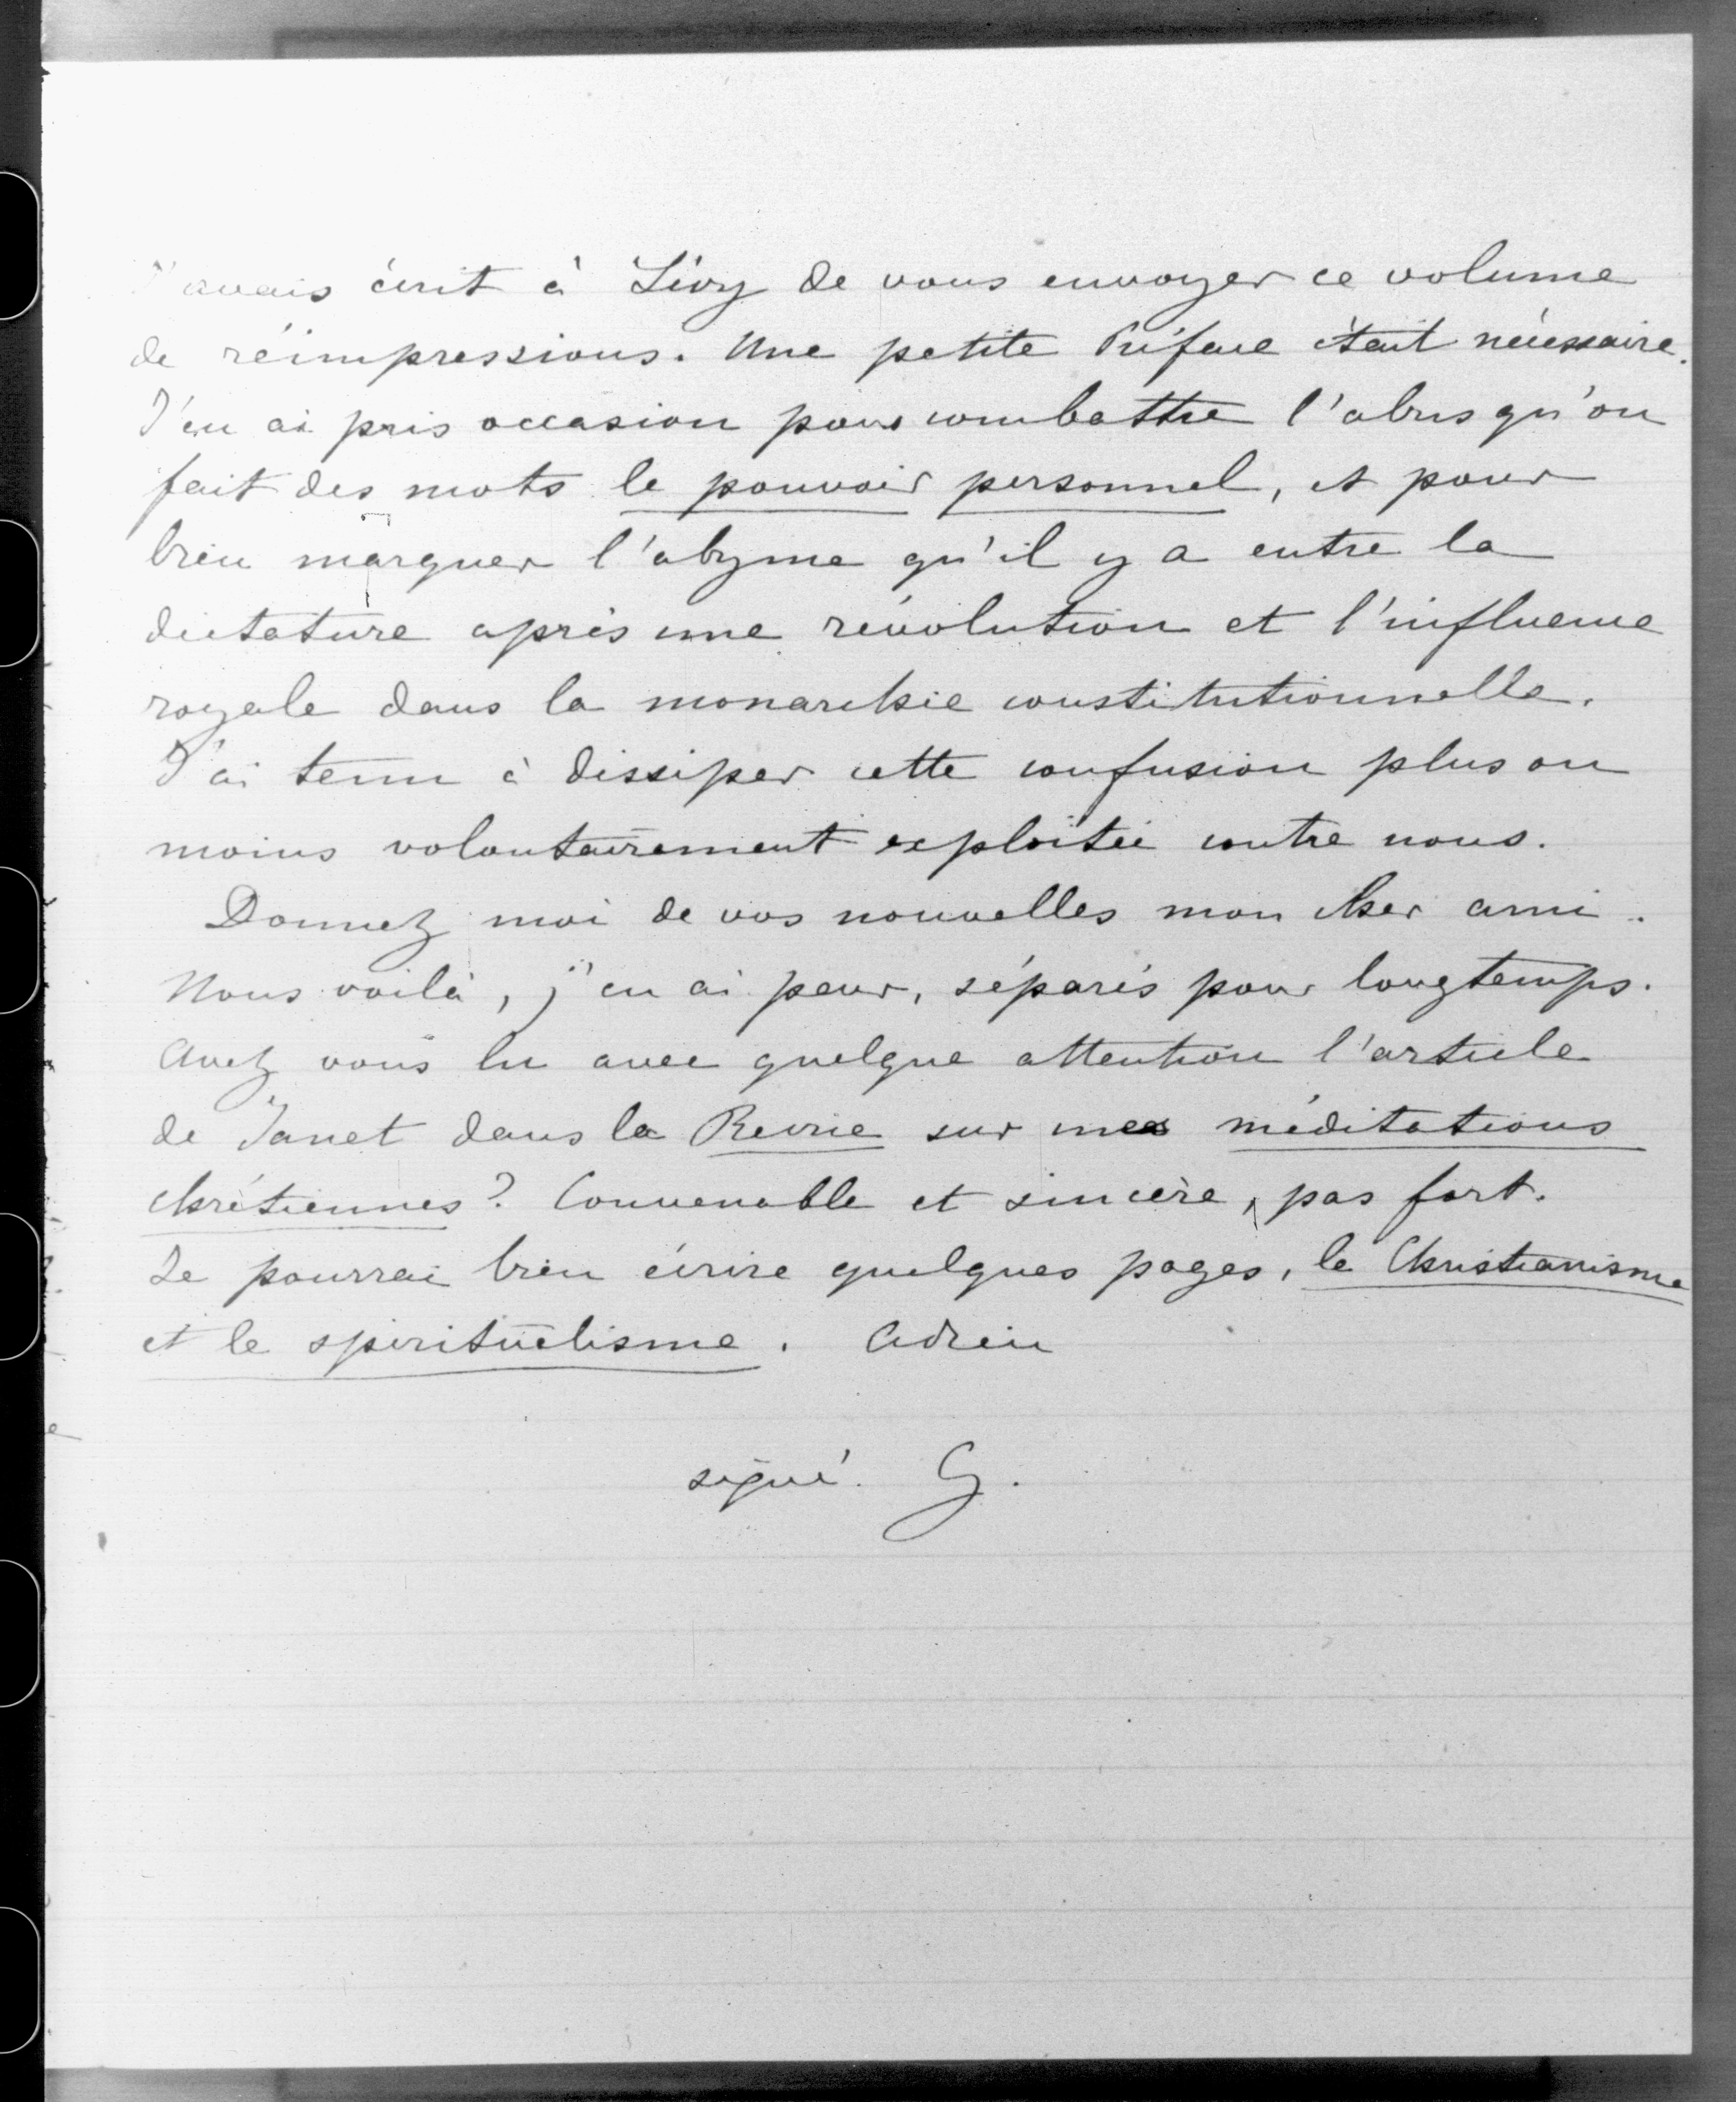 J'avais écrit à Lévy de vous envoyer ce volume
de réimpressions. Une petite Préface était nécessaire.
J'en ai pris occasion pour combattre l'abus qu'on
fait des mots le pouvoir personnel, et pour
bien marquer l'abyme qu'il y a entre la
dictature après une révolution et l'influence
royale dans la monarchie constitutionnelle.
J'ai tenu à dissiper cette confusion plus ou
moins volontairement exploitée contre nous.
Donnez moi de vos nouvelles mon cher ami.
Nous voilà, j'en ai peur, séparés pour longtemps.
Avez vous lu avec quelque attention l'article
de Janet dans la Revue sur mes méditations
chrétiennes ? Convenable et sincère, pas fort.
Je pourrai bien écrire quelques pages, le Christianisme
et le spiritualisme. Adieu
signé. G.